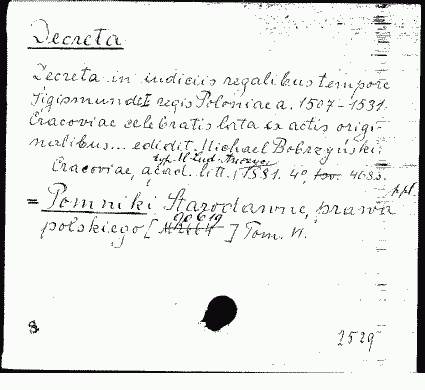 Decreta
Decreta in iudiciis regalibus tempore
Sigismundi I regis Poloniae a. 1507-1531.
Cracoviae celebratis lata ex actis origi-
nalibus... edidit Michael Bobrzyński,
typ. Wł. Lud. Anczyc
Cracoviae, acad. litt., 1881. 4°,
ppl.
= Pomniki Starodawne, prawa
polskiego [ ] Tom. VI.
8
2529